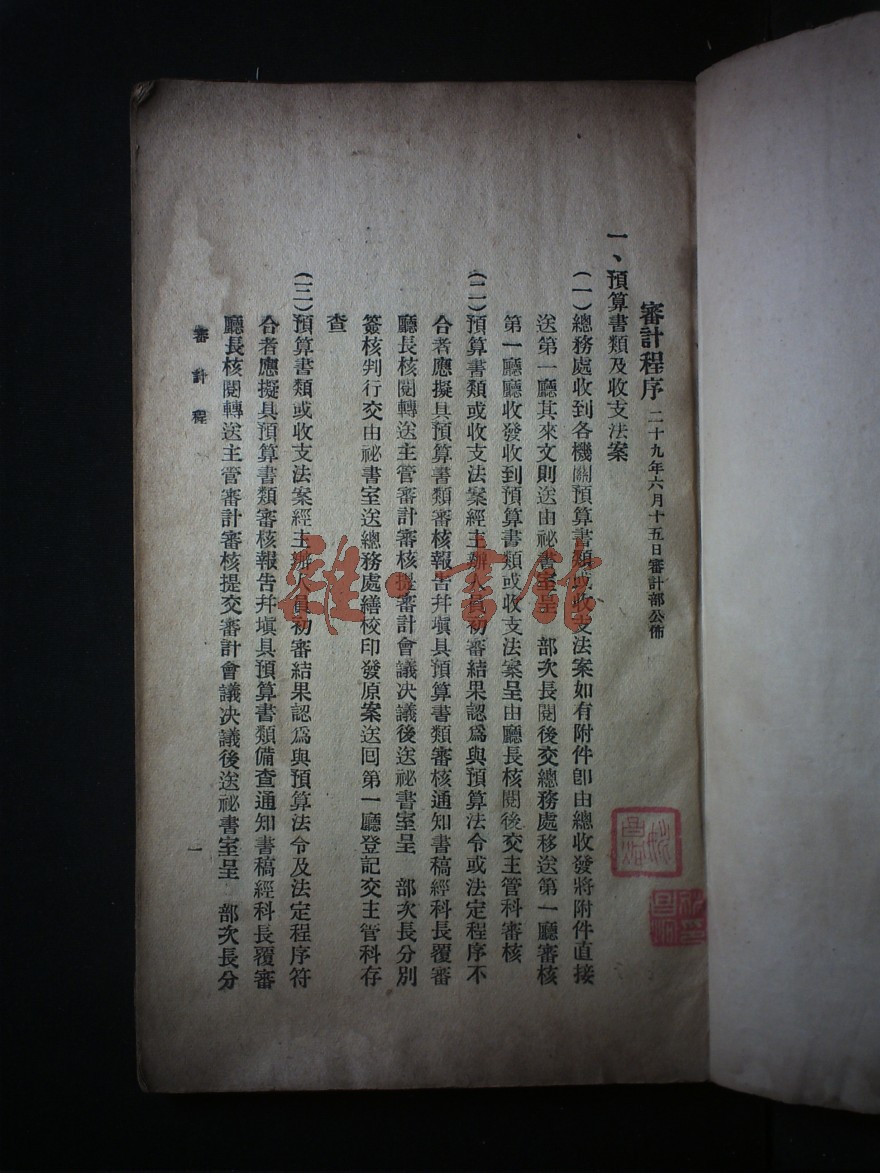 審計程序 二十九年六月十五日審計部公佈
一、預算書類及收支法案
(一)總務處收到各機關預算書類或收支法案如有附件卽由總收發將附件直接
送第一廳其來文則送由祕書室呈 部次長閱後交總務處移送第一廳審核
第一廳廳收發收到預算書類或收支法案呈由廳長核閱後交主管科審核
(二)預算書類或收支法案經主辦人員初審結果認爲與預算法令或法定程序不
合者應擬具預算書類審核報告幷塡具預算書類審核通知書稿經科長覆審
廳長核閱轉送主管審計審核提審計會議決議後送祕書室呈 部次長分別
簽核判行交由祕書室送總務處繕校印發原案送回第一廳登記交主管科存
查
(三)預算書類或收支法案經主辦人員初審結果認爲與預算法令及法定程序符
合者應擬具預算書類審核報告幷塡具預算書類備查通知書稿經科長覆審
廳長核閱轉送主管審計審核提交審計會議決議後送祕書室呈 部次長分
審計程
一
雜·書館